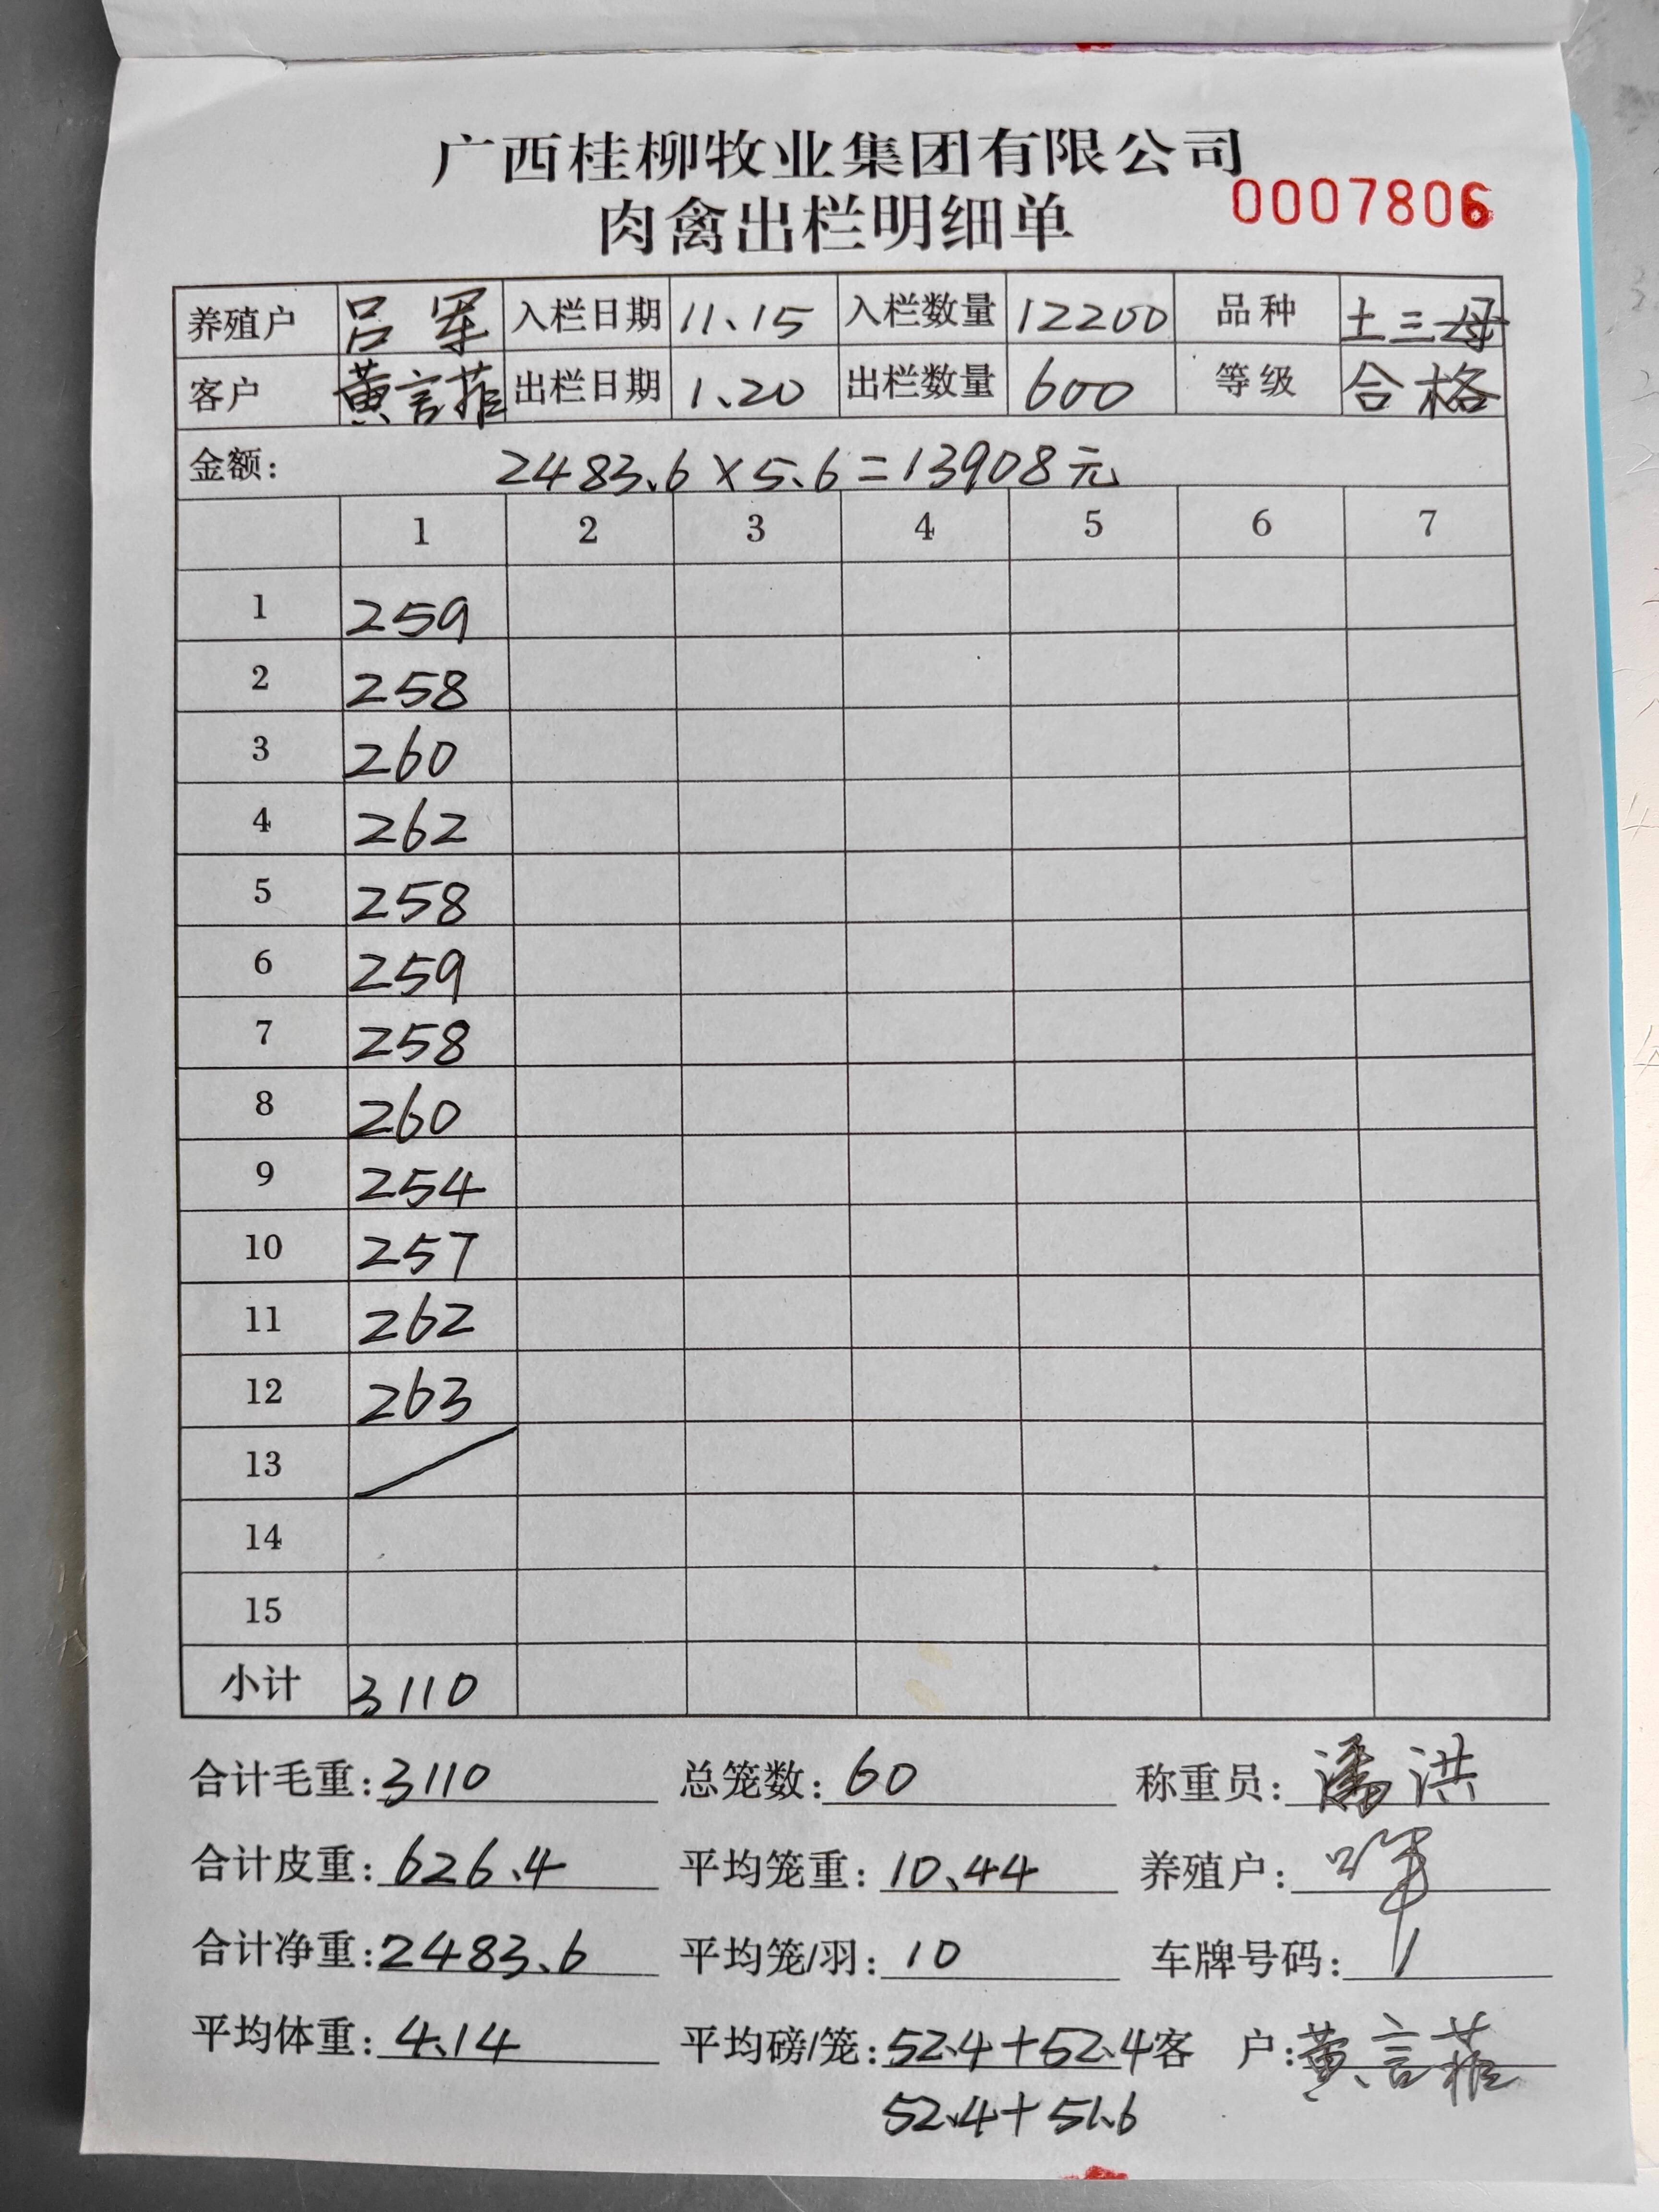 广西桂柳牧业集团有限公司
肉禽出栏明细单 0007806
养殖户 吕军 入栏日期 11.15 入栏数量 12200 品种 土三母
客户 黄言菈 出栏日期 1.20 出栏数量 600 等级 合格
金额: 2483.6×5.6=13908元
1 2 3 4 5 6 7
1 259
2 258
3 260
4 262
5 258
6 259
7 258
8 260
9 254
10 257
11 262
12 263
13
14
15
小计 3110
合计毛重:3110 总笼数:60 称重员:潘洪
合计皮重:626.4 平均笼重:10.44 养殖户:吕军
合计净重:2483.6 平均笼/羽:10 车牌号码:
平均体重:4.14 平均磅/笼:52.4+52.4 客户:黄言菈
52.4+51.6